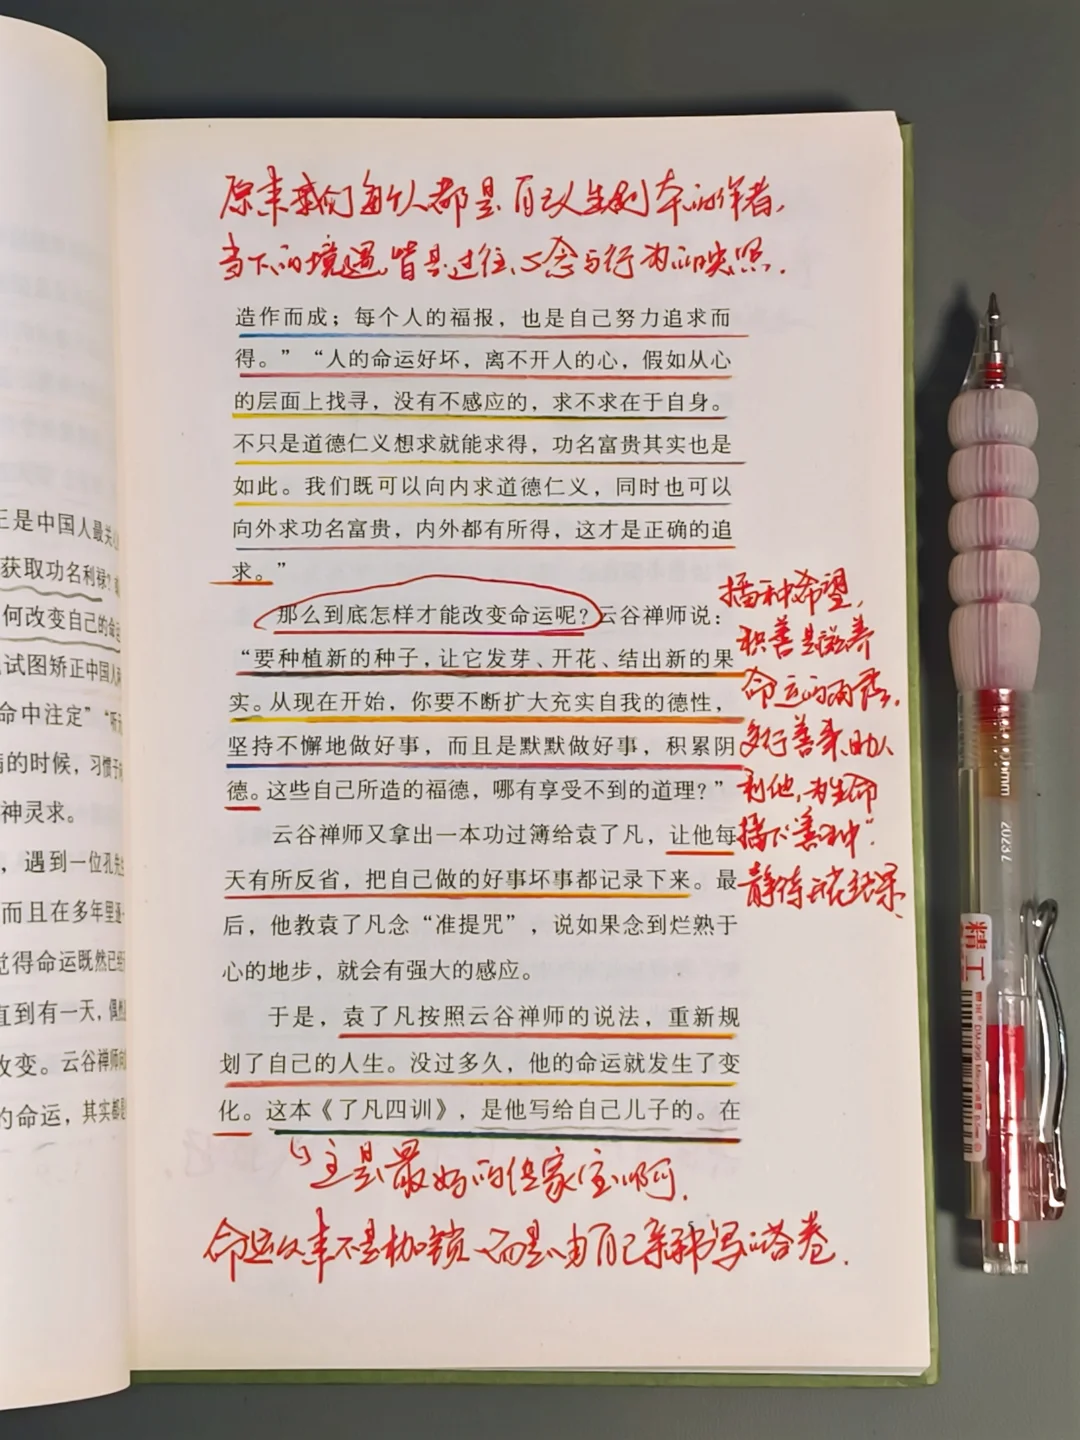 原来我们每个人都是自己人生剧本的作者，
当下的境遇，皆是过往心念与行为的映照．
造作而成；每个人的福报，也是自己努力追求而
得。”“人的命运好坏，离不开人的心，假如从心
的层面上找寻，没有不感应的，求不求在于自身。
不只是道德仁义想求就能求得，功名富贵其实也是
如此。我们既可以向内求道德仁义，同时也可以
向外求功名富贵，内外都有所得，这才是正确的追
求。”
那么到底怎样才能改变命运呢？云谷禅师说：
“要种植新的种子，让它发芽、开花、结出新的果
实。从现在开始，你要不断扩大充实自我的德性，
坚持不懈地做好事，而且是默默做好事，积累阴
德。这些自己所造的福德，哪有享受不到的道理？”
云谷禅师又拿出一本功过簿给袁了凡，让他每
天有所反省，把自己做的好事坏事都记录下来。最
后，他教袁了凡念“准提咒”，说如果念到烂熟于
心的地步，就会有强大的感应。
于是，袁了凡按照云谷禅师的说法，重新规
划了自己的人生。没过多久，他的命运就发生了变
化。这本《了凡四训》，是他写给自己儿子的。在
播种希望，
积善是滋养
命运的雨露，
多行善举、助人
利他，为生命
播下“善种”
静待花开结果、
这是最好的传家宝啊．
命运从来不是枷锁、而是由自己亲手书写的答卷．
正是中国人最关
获取功名利禄？
何改变自己的命
试图矫正中国人
命中注定”“听
的时候，习惯于
神灵求。
，遇到一位孔先
而且在多年里逐
觉得命运既然已经
直到有一天，偶然
改变。云谷禅师向
的命运，其实都是
精工
0mm
2023L